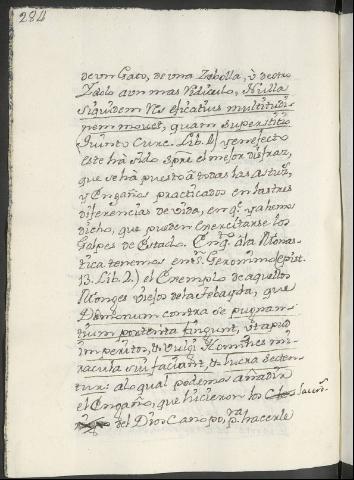 284
de un Gato, de una Zebolla, ù de otro
Ydolo aun mas Ridiculo, Nulla
siquidem Rs eficatius multitudi-
nem movet, quam Superstitio
Quinto Curc. Lib. 4) y en efecto
este hà sido spre el mejor disfraz,
que se hà puesto â todas las astuz.s
y Engaños practicados en las tres
diferencias de vida, en q.e ya hemos
dicho, que pueden exercitarse los
Golpes de Estado. En q.to âla Monas-
tica tenemos en S. Geronimo (Epist.
13. Lib. 2.) el Exemplo de aquellos
Monges viejos de la Tebayda, que
Dæmonum contra se pugnan-
tium portenta fingunt, ut apud
imperitos, & vulgi Homines mi-
racula sui faciant, & lucra secten-
tur: alo qual podemos añadir
el Engaño, que hicieron los
del Dios Canopo, p.ra hacerle